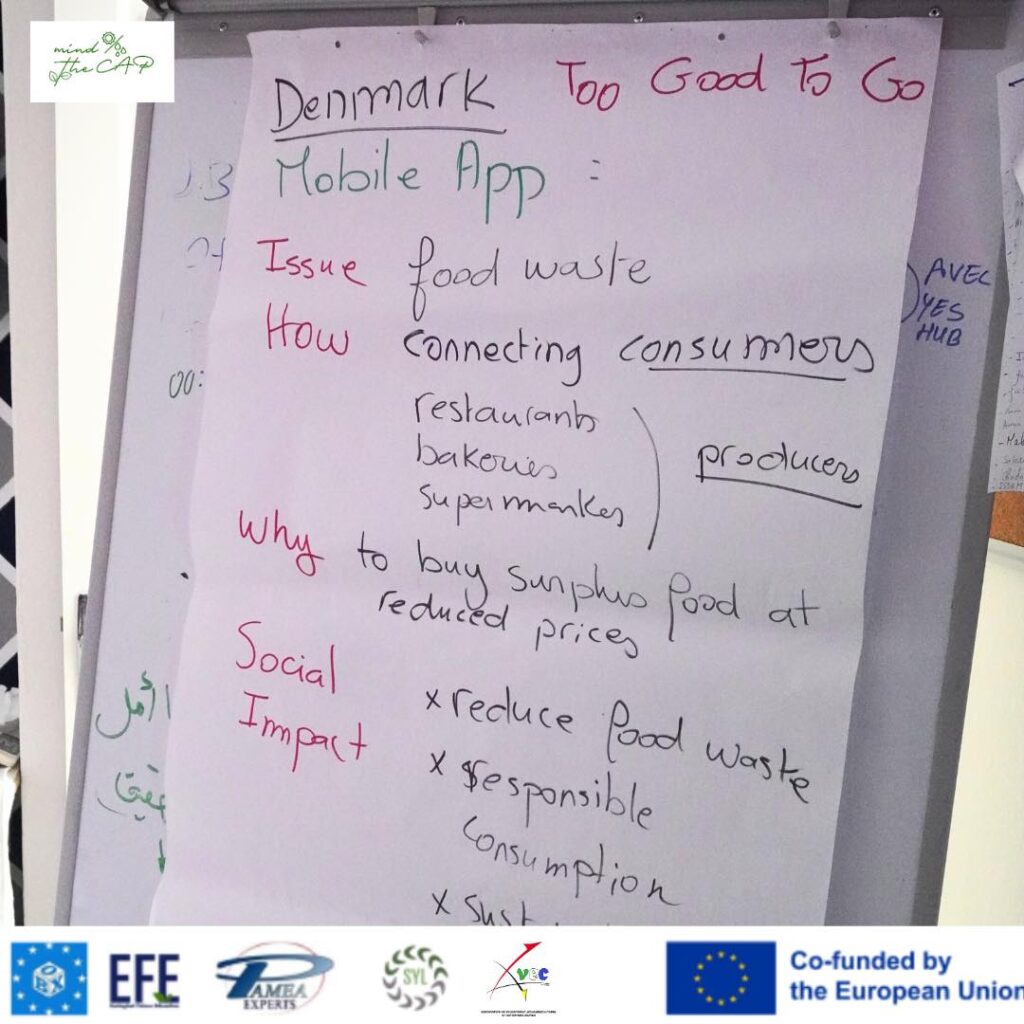 mind
the CAP
Denmark Too Good To Go
Mobile App :
Issue food waste
How connecting consumers
restaurants
bakeries
supermarkes
producers
Why to buy surplus food at
reduced prices
Social
Impact
x reduce food waste
x responsible
consumption
x sust
AVEC
YES
HUB
00:
أمل
EFE
PAMEA
EXPERTS
SYL
AVEC
Co-funded by
the European Union